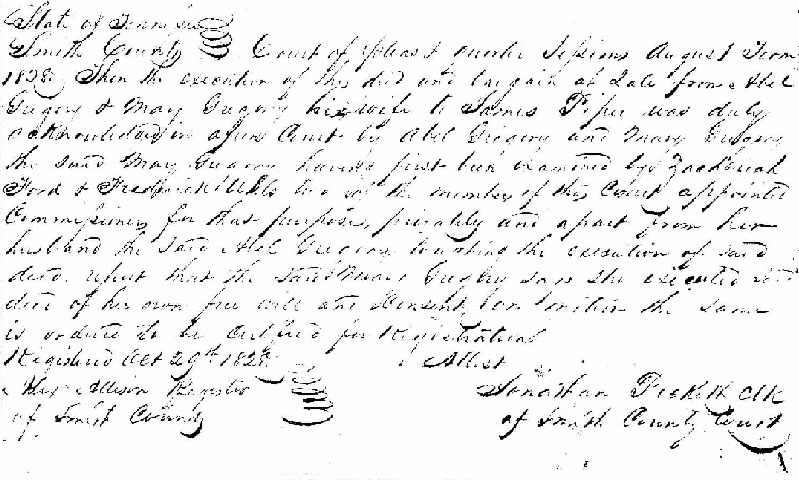 State of Tennessee
Smith County Court of Pleas & quarter Sessions August Term
1828. Then the execution of this deed and bargain of Sale from Abel
Gregory & Mary Gregory his wife to James Piper was duly
acknowledged in open Court by Abel Gregory and Mary Gregory
the said Mary Gregory having first been examined by Zachariah
Ford & Frederick two of the members of this Court appointed
Commissioners for that purpose, privately and apart from her
husband the said Abel Gregory touching the execution of said
deed report that the said Mary Gregory says she executed said
deed of her own free will and Consent, the same
is ordered to be Certified for Registration
Registered Oct 29th 1828. Attest
Allison Register Jonathan Pickett Clk
of Smith County of Smith County Court